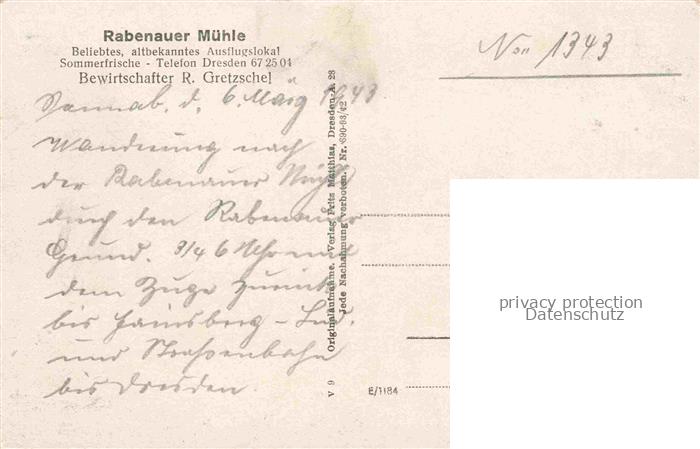 Rabenauer Mühle
Beliebtes, altbekanntes Ausflugslokal
Sommerfrische - Telefon Dresden 67 25 01
Bewirtschafter R. Gretzschel
Sonnab. d. 6. März 1943
Wanderung nach
der Rabenauer Mühle
durch den Rabenauer
Grund. 3/4 6 Uhr mit
dem Zuge zurück
bis Hainsberg -
und Straßenbahn
bis Dresden.
1343
Originalaufnahme. Verlag Fritz Matthias, Dresden-A. 28
Jede Nachahmung verboten. Nr. 690-93/42
V 9
E/1184
privacy protection
Datenschutz